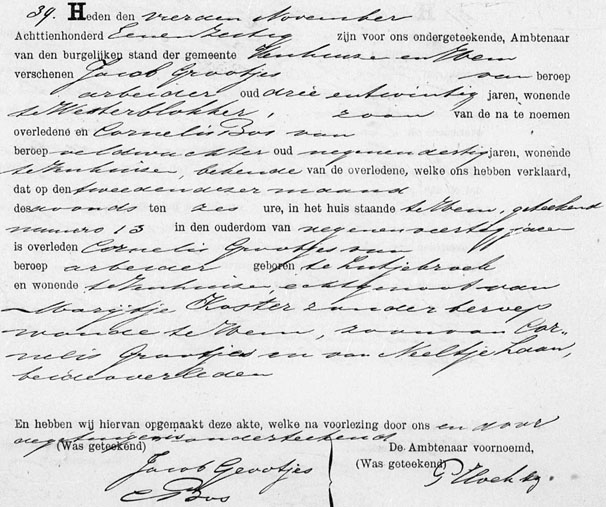 39. Heden den vierden November
Achttienhonderd Eenen zestig zijn voor ons ondergeteekende, Ambtenaar
van den burgelijken stand der gemeente Venhuize en Wem
verschenen Jacob Grootjes van beroep
arbeider oud drie en twintig jaren, wonende
te Westerblokker, zoon van de na te noemen
overledene en Cornelis Bos van
beroep veldwachter oud negenendertig jaren, wonende
te Venhuize, bekende van de overledene, welke ons hebben verklaard,
dat op den tweeden dezer maand
des avonds ten zes ure, in het huis staande te Wem, geteekend
numero 13 in den ouderdom van negenenveertig jaren
is overleden Cornelis Grootjes van
beroep arbeider geboren te Lutjebroek
en wonende te Venhuize, echtgenoot van
Marijtje Koster zonder beroep
wonende te Wem, zoon van Cor-
nelis Grootjes en van Neeltje Laan,
beide overleden
En hebben wij hiervan opgemaakt deze akte, welke na voorlezing door ons en door
de getuigen is onderteekend
(Was geteekend) De Ambtenaar voornoemd,
Jacob Grootjes (Was geteekend)
C Bos